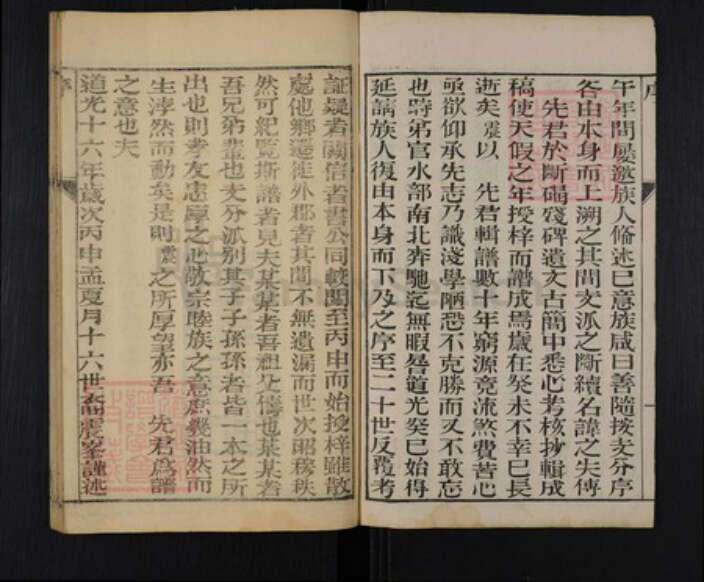 序
午年間屢邀族人脩述已意族咸曰善隨按支分序
各由本身而上溯之其間支派之斷續名諱之失傳
先君於斷碣殘碑遺文古簡中悉心考核抄輯成
稿使天假之年授梓而譜成焉歲在癸未不幸已長
逝矣震以 先君輯譜數十年窮源竟流煞費苦心
亟欲仰承先志乃識淺學陋恐不克勝而又不敢忘
也時弟官水部南北奔馳迄無暇晷道光癸巳始得
延請族人復由本身而下及之序至二十世反覆考
証疑者闕信者書公同較閱至丙申而始授梓雖散
處他鄉遷徙外郡者其間不無遺漏而世次昭穆秩
然可紀覽斯譜者見夫某某者吾祖父儔也某某者
吾兄弟輩也支分派別其子子孫孫者皆一本之所
出也則孝友忠厚之心敬宗睦族之意庶幾油然而
生浡然而動矣是則震之所厚望亦吾 先君為譜
之意也夫
道光十六年歲次丙申孟夏月十六世裔震峯謹述